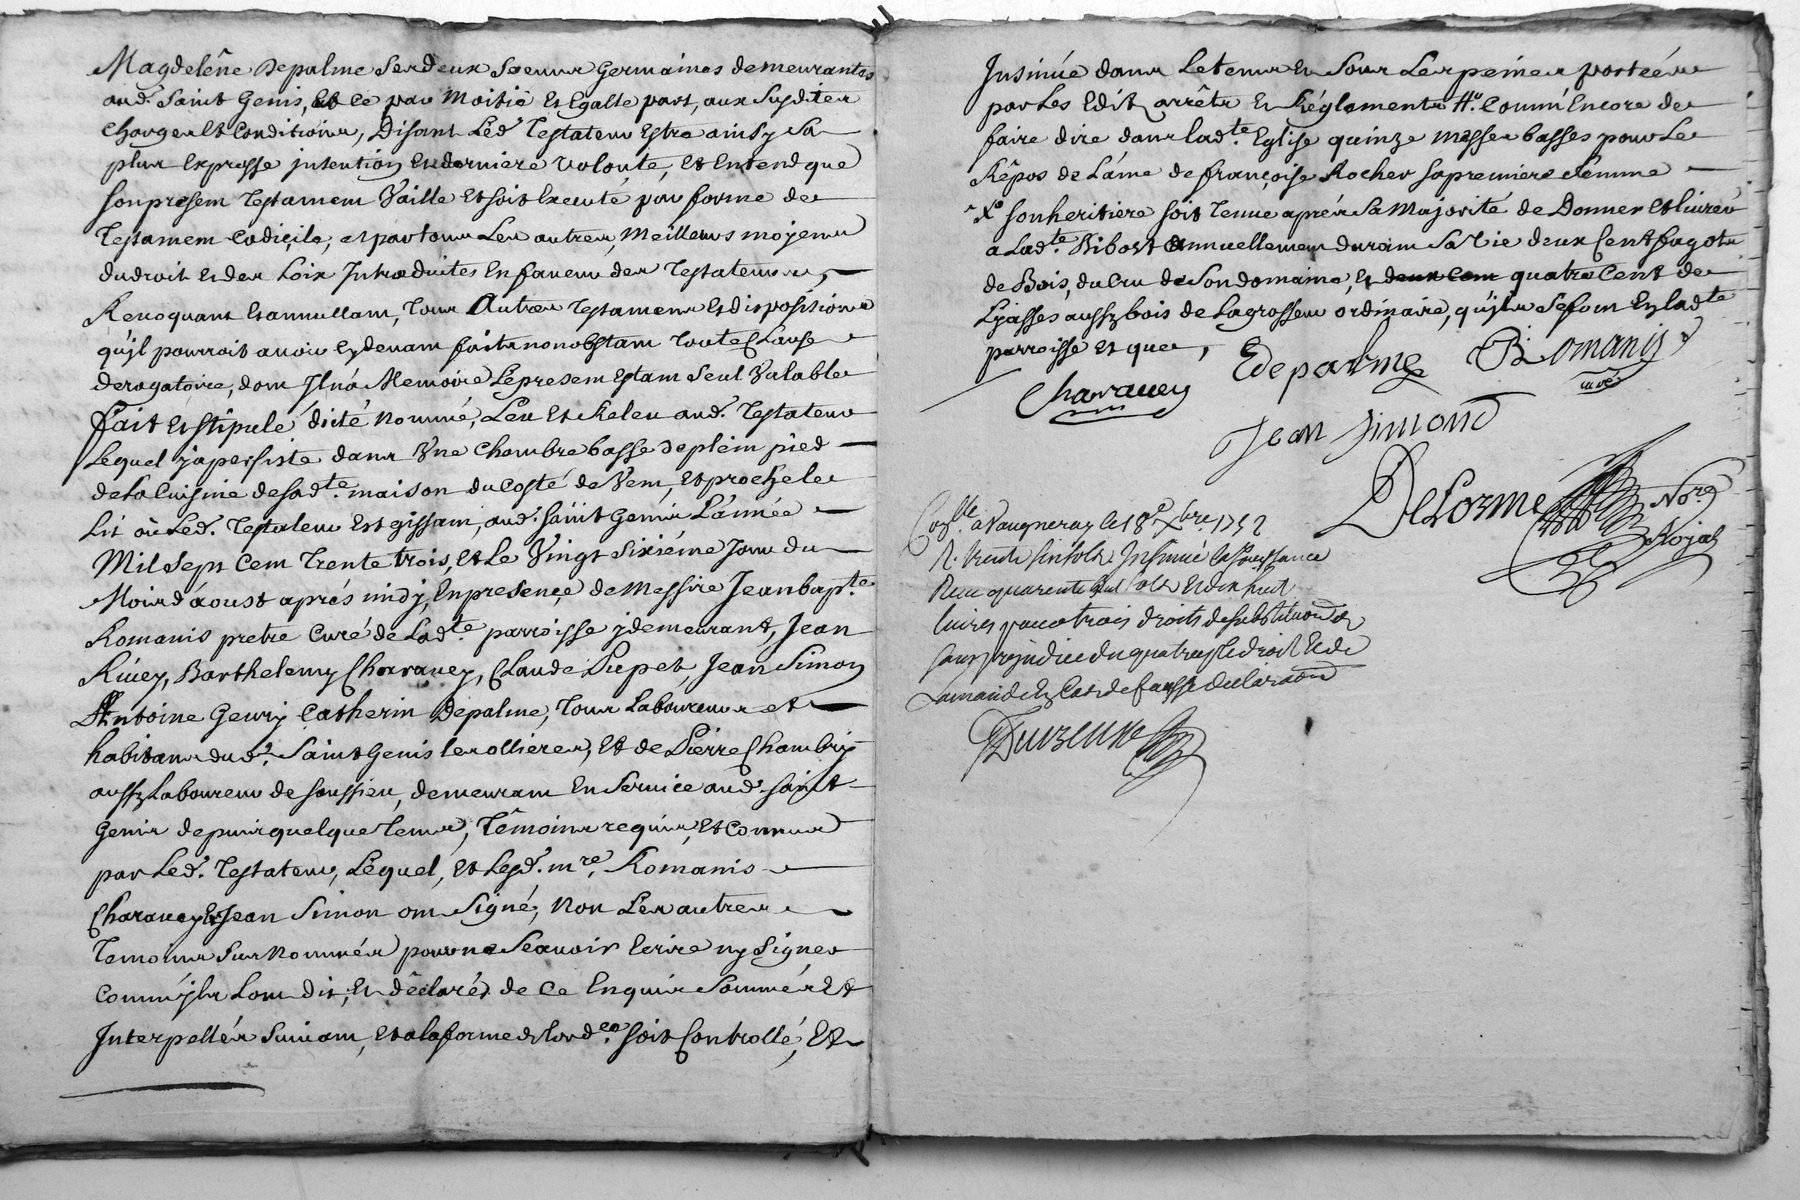 Magdelêne Depalme Ses deux Soeurs Germaines demeurantes
aud. Saint Genis, Et ce par Moitié Et Egalle part, aux Susdites
Charges Et Conditions, Disant Led. Testateur Estre ainsy Sa
plus Expresse jntention Et derniére Volonté, Et Entend que
Son presem Testamem Vaille Et soit Executé par forme de
Testamem Codiçile, et par tous Les autres, Meilleurs moyens
du droit Et des Loix Introduites En faveur des Testateurs,
Revoquant Et annullam, Tous Autres Testamens Et dispositions
qu'jl pourroit avoir Cy devam faits nonobstam Toute Clause
derogatoire, dom Il n'a Memoire, Le presem Estam Seul Valable
fait Et Stipulé dicté Nommé, Leu Et Releu aud. Testateur
Lequel y a persisté dans Une Chambre basse de plein pied
de La Cuisine de Sad.te maison du Costé de Vem, Et proche Le
Lit où Led. Testateur Est gissam, aud. Saint Genis L'année
Mil Sept Cem Trente trois, Et Le Vingt Sixiéme Jour du
Mois d'aoust aprés midy, En presençe de Messire Jean bap.te
Romanis pretre Curé de Lad.te parroisse y demeurant, Jean
Rivey, Barthelemy Charavey, Claude Pupet, Jean Simon
Antoine Geury Catherin Depalme, Tous Laboureurs et
habitans dud. Saint Genis les ollieres, Et de Pierre Chambry
aussy Laboureur de Soussieu, demeuram En Service aud. Saint
Genis depuis quelque Tems, Témoins requis, Et Connus
par Led. Testateur, Lequel, Et Lesd. m.re Romanis
Charavey Et Jean Simon om Signé, Non Les autres
Temoins Sus Nommés pour ne Sçavoir Ecrire ny Signer
Comm'jls Lom dit, Et déclaré, de Ce Enquis Sommés Et
Interpellés Suivam, Et a la forme de l'ord.ce Soit Controllé, Et
Insinué dans Le tems Et Sous Les peines portées
par Les Edits arrêts Et Réglements #. Comm'Encore de
faire dire dans lad.te Eglise quinze Messes basses pour Le
Répos de L'áme de françoise Rocher Sa premiére femme
X Son heritiere Soit Tenue aprés Sa Majorité de Donner Et livrer
a Lad.te Ribost annuellemem duram Sa Vie deux Cent fagots
de Bois, du Cru de Son domaine, Et deux Cem quatre Cent de
Lyasses aussy bois de La grosseur ordinaire, qu'jls Se fom En lad.te
parroisse Et que,
Charavey Edepalme Romanis
curé
Jean Simond
Delorme No.re
Royal
Con.lle a Vaugneray le 18.e Xbre 1752
R. trente Six Sols Insinué la Jouissance
Reçu quarente huit Sols Et dix huit
livres pour trois droits de Substitution
Sans préjudice du quatruple droit Et de
Lamande En Cas de fausse declaration